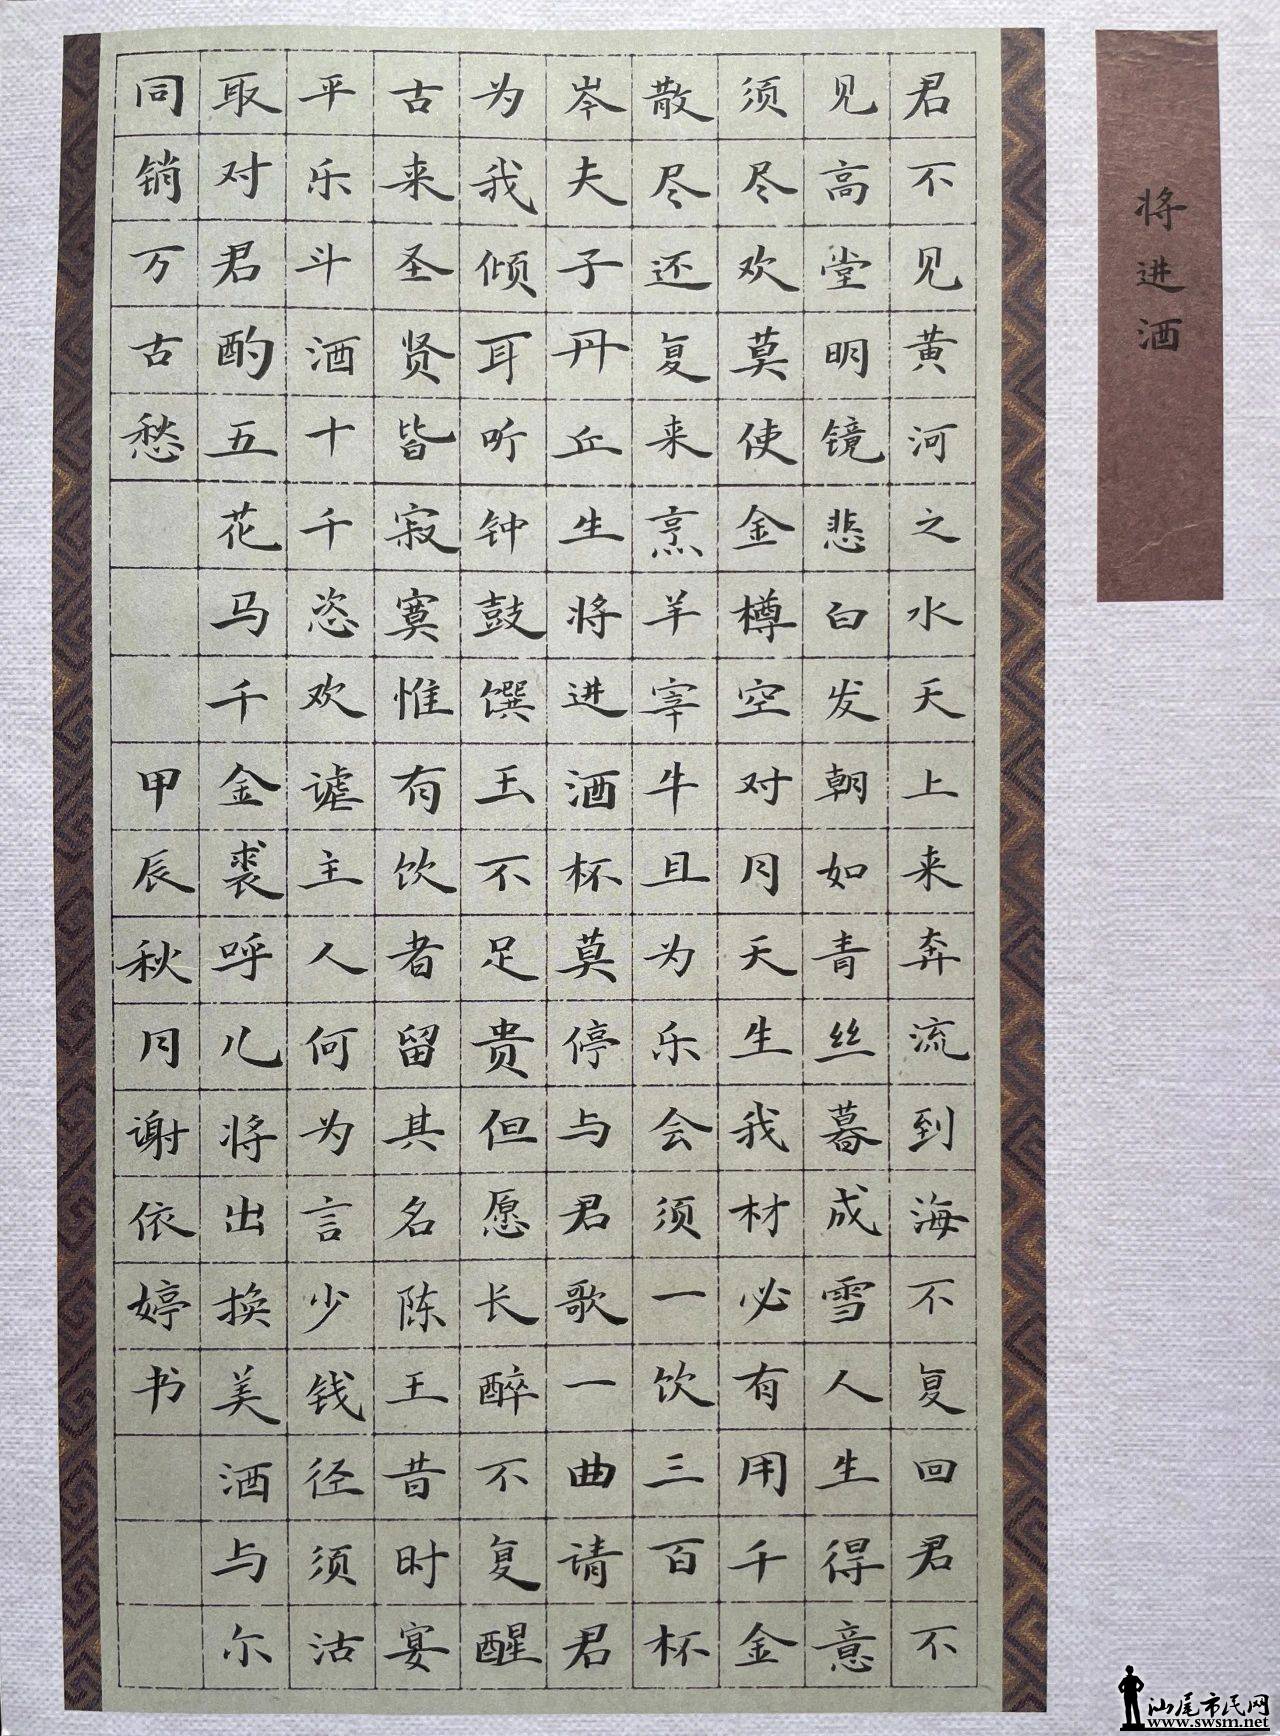 将进酒
君不见黄河之水天上来奔流到海不复回君不
见高堂明镜悲白发朝如青丝暮成雪人生得意
须尽欢莫使金樽空对月天生我材必有用千金
散尽还复来烹羊宰牛且为乐会须一饮三百杯
岑夫子丹丘生将进酒杯莫停与君歌一曲请君
为我倾耳听钟鼓馔玉不足贵但愿长醉不复醒
古来圣贤皆寂寞惟有饮者留其名陈王昔时宴
平乐斗酒十千恣欢谑主人何为言少钱径须沽
取对君酌五花马千金裘呼儿将出换美酒与尔
同销万古愁 甲辰秋月谢依婷书
汕尾市民网
www.swsm.net